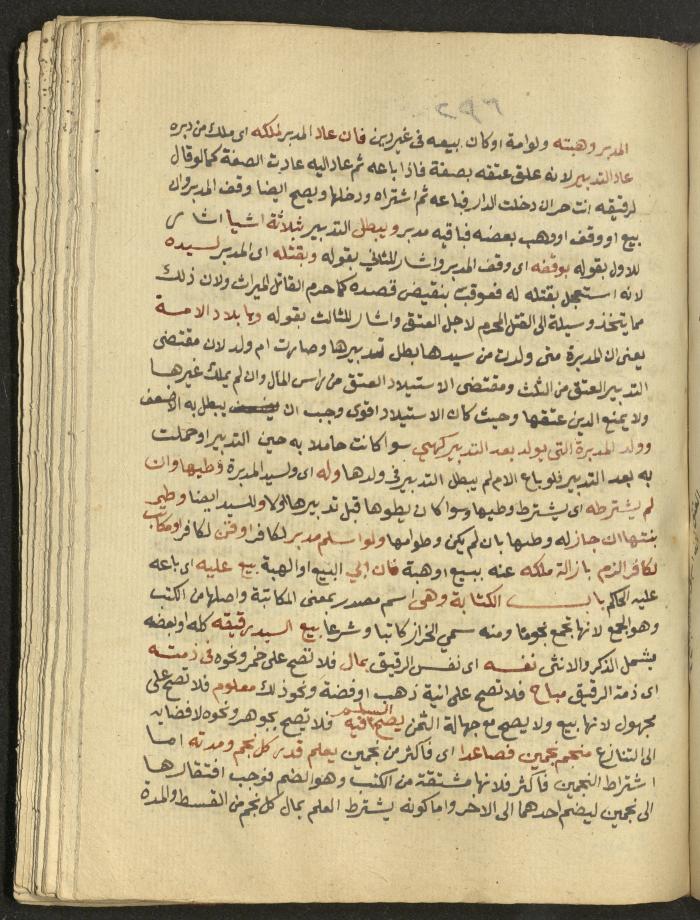 ٢٩٦
المدبر وهبته ولو امة او كان بيعه في غير دين فان عاد المدبر لملكه اي ملك من دبره
عاد التدبير لانه علق عتقه بصفة فاذا باعه ثم عاد اليه عادت الصفة كما لو قال
لرقيقه انت حر ان دخلت الدار فباعه ثم اشتراه ودخلها ويصح ايضا وقف المدبر وان
بيع او وقف او وهب بعضه فباقيه مدبر ويبطل التدبير ثلاثة اشيا اشار
للاول بقوله بوقفه اي وقف المدبر واشار للثاني بقوله وبقتله اي المدبر لسيده
لانه استعجل بقتله له فعوقب بنقيض قصده كما حرم القاتل الميراث ولان ذلك
مما يتخذ وسيلة الى القتل المحرم لاجل العتق واشار للثالث بقوله وبايلاد الامة
يعني ان المدبرة متى ولدت من سيدها بطل تدبيرها وصارت ام ولد لان مقتضى
التدبير العتق من الثلث ومقتضى الاستيلاد العتق من راس المال وان لم يملك غيرها
ولا يمنع الدين عتقها وحيث كان الاستيلاد اقوى وجب ان يبطل به الاضعف
وولد المدبرة التي يولد بعد التدبير كهي سوا كانت حاملا به حين التدبير او حملت
به بعد التدبير فلو باع الام لم يبطل التدبير في ولدها وله اي ولسيد المدبرة وطيها وان
لم يشترطه اي يشترط وطيها وسوا كان يطوها قبل تدبيرها او لا وللسيد ايضا وطي
بنتها ان جاز له وطيها بان لم يكن وطي امها ولو اسلم مدبر لكافر او قن لكافر او مكاتب
لكافر الزم بازالة ملكه عنه ببيع او هبة فان ابي البيع او الهبة بيع عليه اي باعه
عليه الحاكم باب الكتابة وهي اسم مصدر بمعنى المكاتبة واصلها من الكتب
وهو الجمع لانها تجمع نجوما ومنه سمي الخراز كاتبا وشرعا بيع السيد رقيقه كله او بعضه
يشمل الذكر والانثى نفسه اي نفس الرقيق بمال فلا تصح على خمر ونحوه في ذمته
اي ذمة الرقيق مباح فلا تصح على انية ذهب او فضة ونحو ذلك معلوم فلا تصح على
مجهول لانها بيع ولا يصح مع جهالة الثمن يصح فيه السلم فلا تصح بجوهر ونحوه لافضايه
الى التنازع منجم نجمين فصاعدا اي فاكثر من نجمين يعلم قدر كل نجم ومدته اما
اشتراط النجمين فاكثر فلانها مشتقة من الكتب وهو الضم فوجب افتقارها
الى نجمين ليضم احدهما الى الاخر واما كونه يشترط العلم بمال كل نجم من القسط والمدة